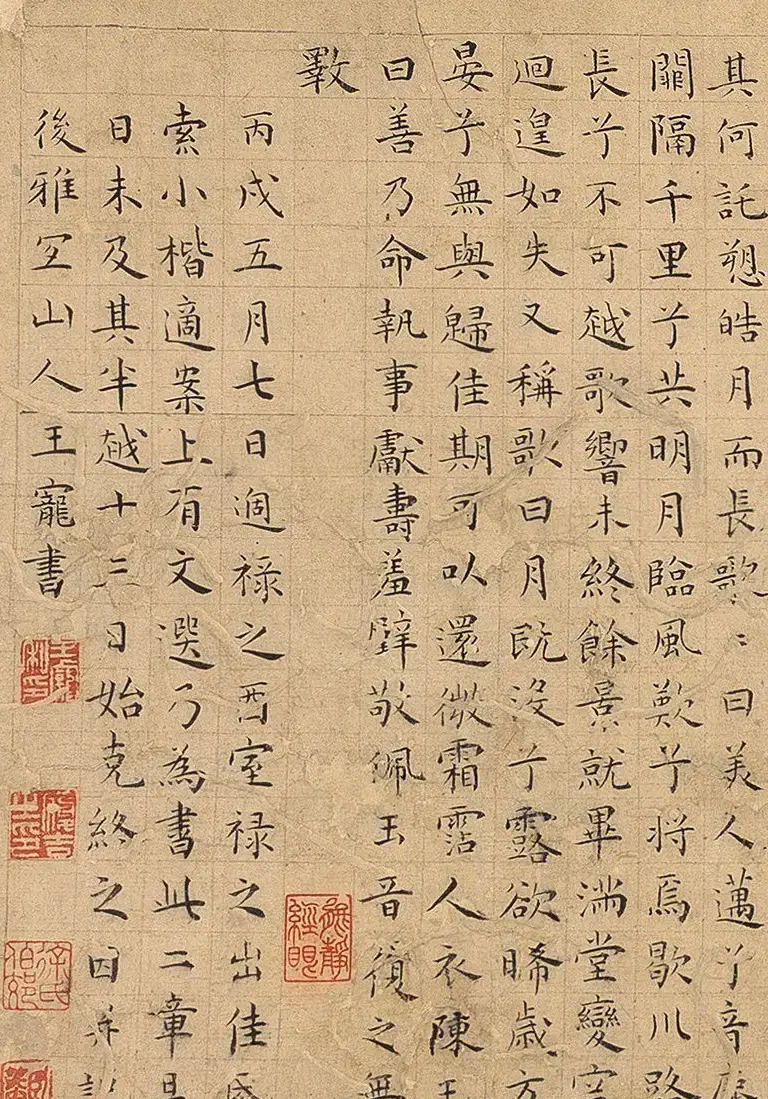 其何託愬皓月而長歌〻曰美人邁兮音
關隔千里兮共明月臨風歎兮將焉歇川路
長兮不可越歌響未終餘景就畢滿堂變容
迴遑如失又稱歌曰月既沒兮露欲晞歲方
晏兮無與歸佳期可以還微霜霑人衣陳王
曰善乃命執事獻壽羞璧敬佩玉音復之無
斁
丙戌五月七日過祿之西室祿之出佳
索小楷適案上有文選乃為書此二章是
日未及其半越十三日始克終之因并
後雅宜山人王寵書
無靜經眼
徐氏